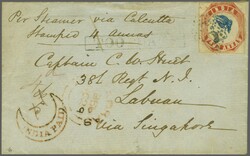 Per Steamer via Calcutta
Stamped 4 Annas
Captain C. W. Street
38th Regt N. I.
Labuan
via Singapore
INDIA PAID